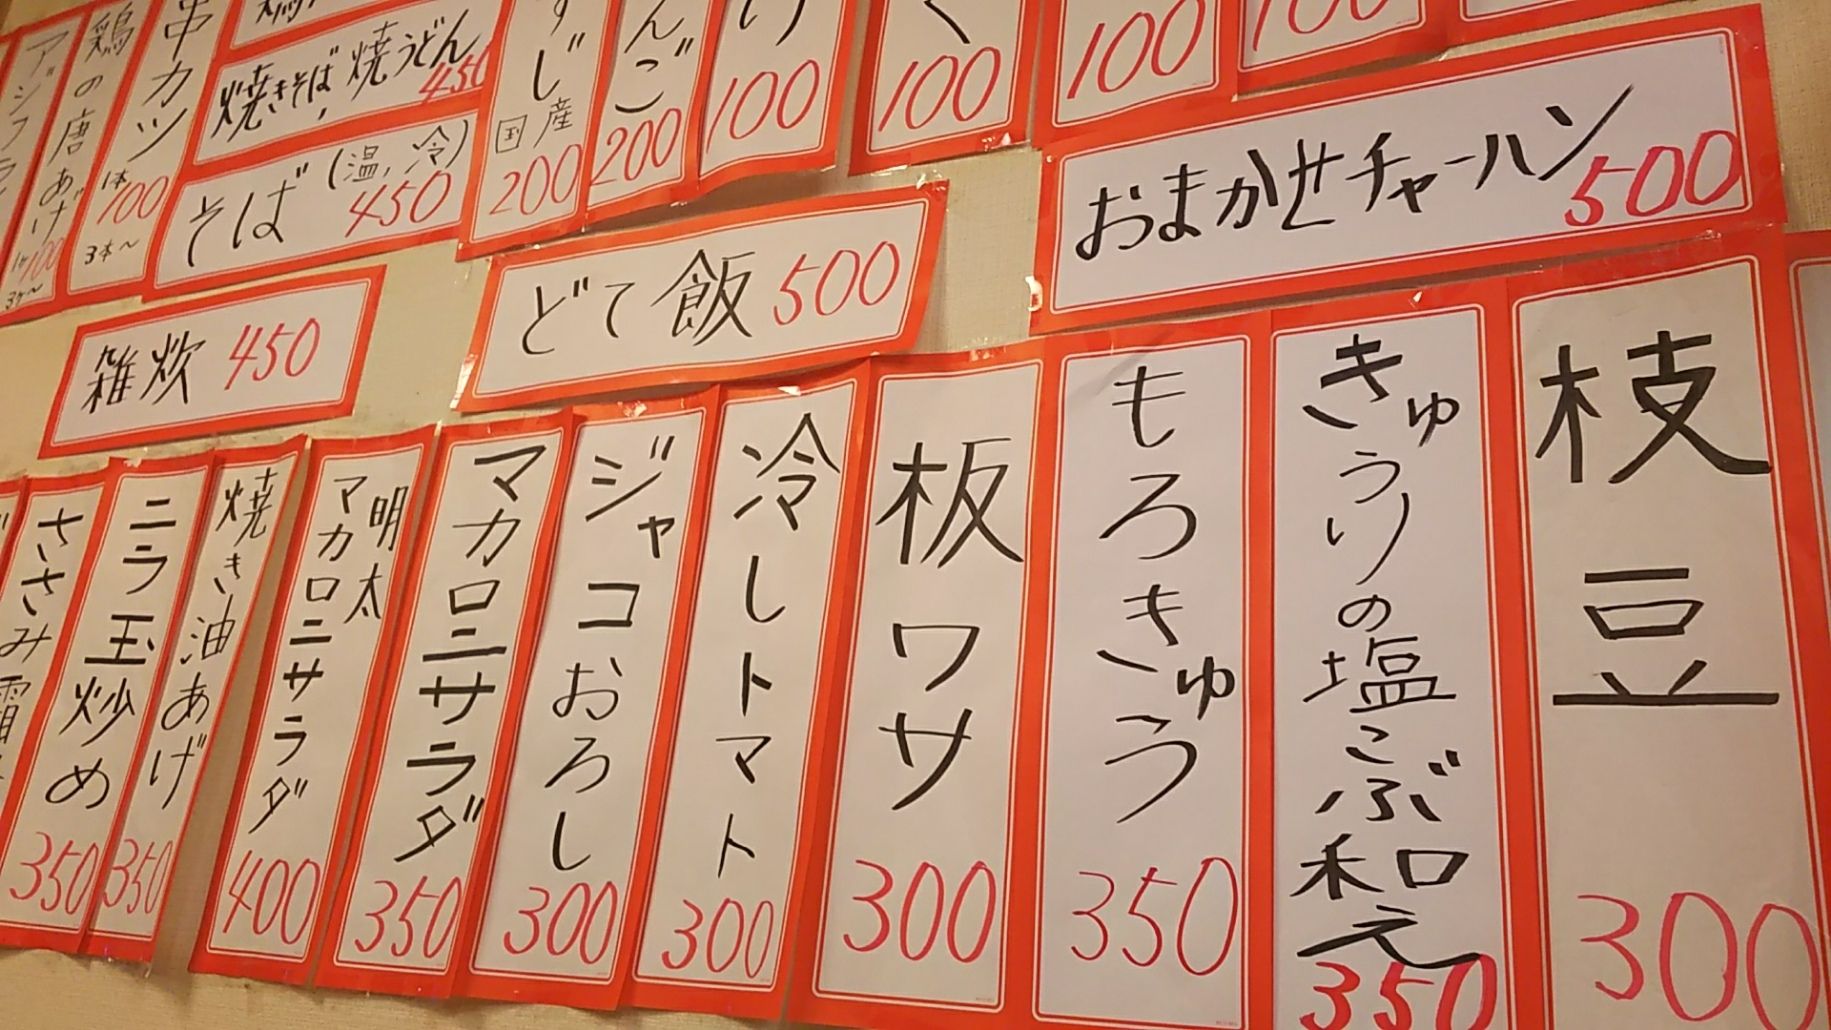 串カツ
1本
100
3本～
鶏の唐あげ
100
焼きそば,焼うどん
450
そば(温,冷)
450
すじ
国産
200
んご
200
100
100
100
おまかせチャーハン
500
どて飯 500
雑炊 450
枝豆
300
きゅうりの塩こぶ和え
350
もろきゅう
350
板ワサ
300
冷しトマト
300
ジャコおろし
300
マカロニサラダ
350
明太
マカロニサラダ
400
焼き油あげ
350
ニラ玉炒め
350
ささみ